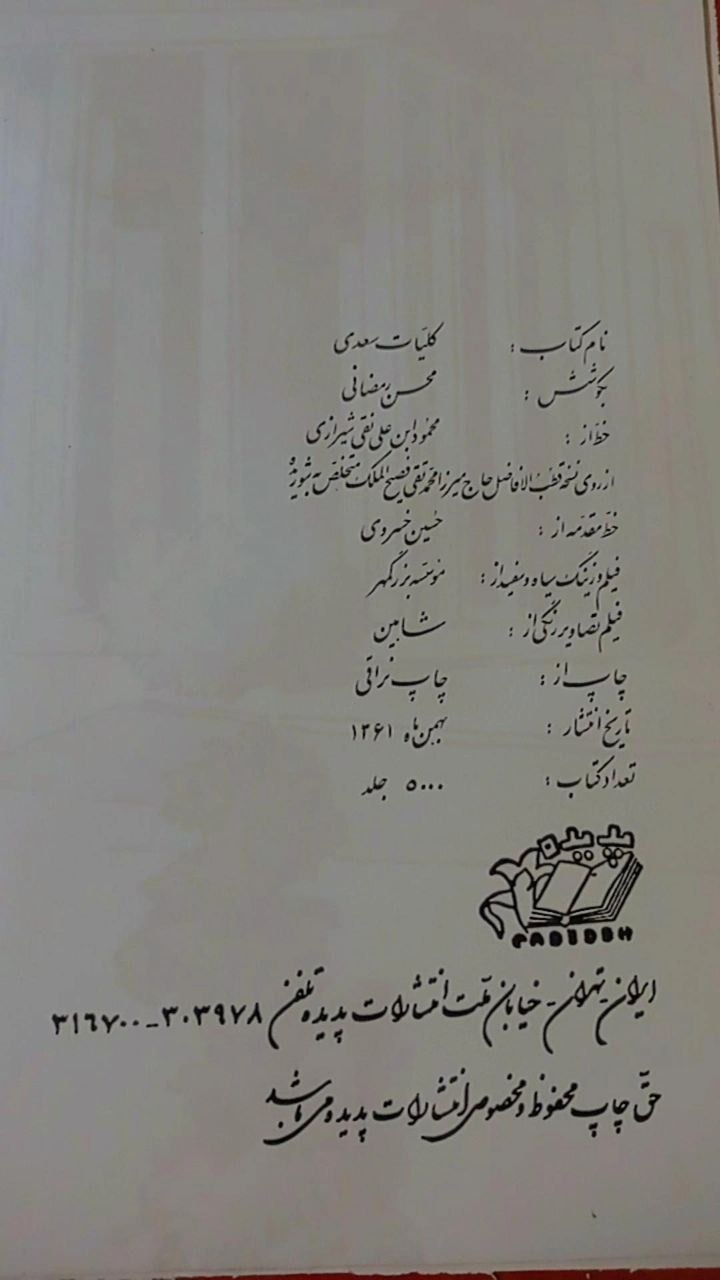 نام کتاب : کلیّات سعدی
بکوشش : محسن رمضانی
خطّ از : محمود ابن علی نقی شیرازی
از روی نسخهٔ قطب الافاضل حاج میرزا محمد تقی فصیح الملک متخلّص به شوریده
خطّ مقدّمه از : حسین خسروی
فیلم و زینک سیاه و سفید از : مؤسسه بزرگمهر
فیلم تصاویر رنگی از : شاهین
چاپ از : چاپ نراقی
تاریخ انتشار : بهمن ماه ۱۳۶۱
تعداد کتاب : ۵۰۰۰ جلد
پدیده
PADIDEH
ایران - تهران - خیابان ملّت انتشارات پدیده تلفن ۳۰۳۹۷۸ - ۳۱۶۷۰۰
حقّ چاپ محفوظ و مخصوص انتشارات پدیده می باشد